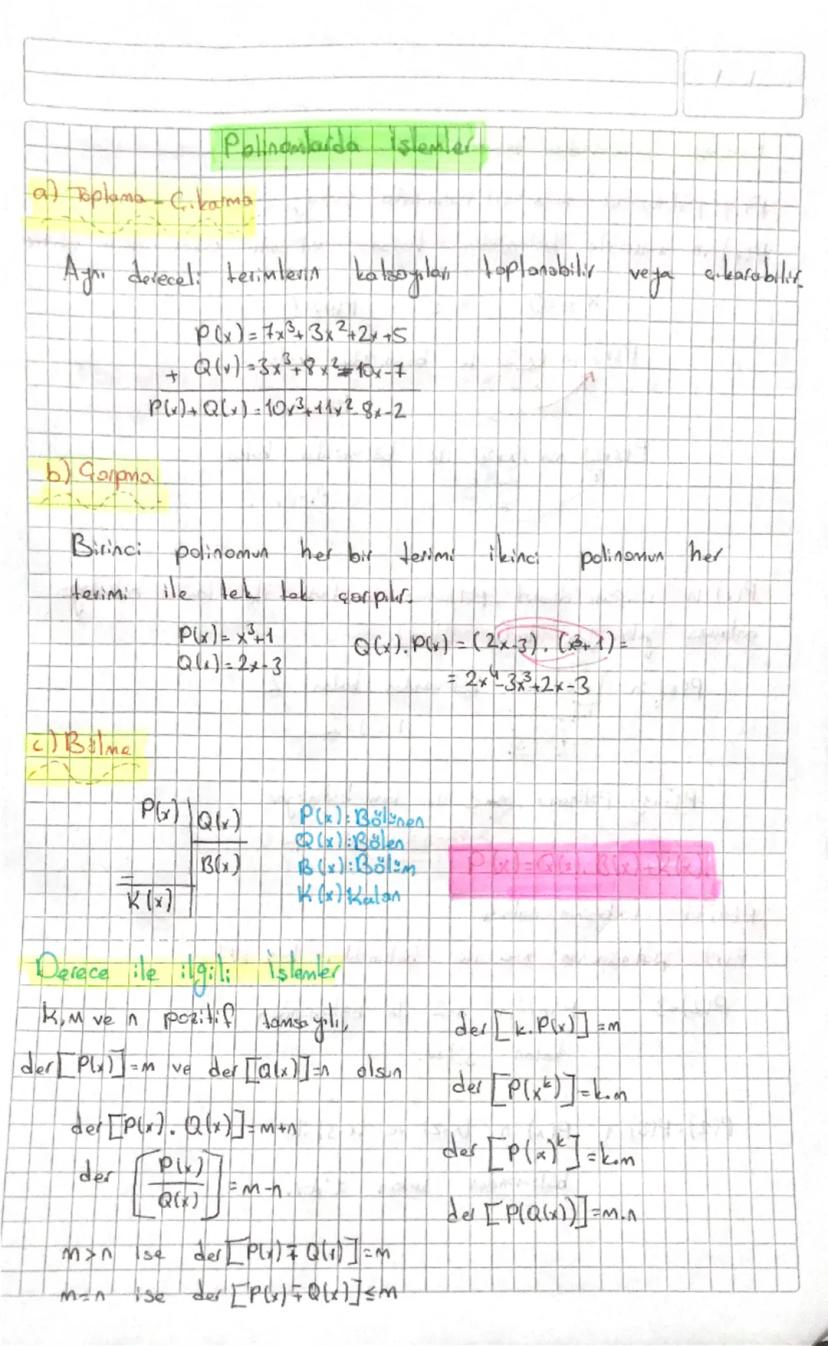 Polinomlarda İşlemler
a) Toplama - Çıkarma
Aynı dereceli terimlerin katsayıları toplanabilir veya çıkarabilir.
P(x) = 7x³+3x²+2x+5
+ Q(x) = 3x³+8x²-10x-7
P(x)+Q(x) = 10x³+11x²-8x-2
b) Çarpma
Birinci polinomun her bir terimi ikinci polinomun her
terimi ile tek tek çarpılır.
P(x) = x³+1
Q(x) = 2x-3
Q(x).P(x) = (2x-3).(x³+1) =
= 2x⁴-3x³+2x-3
c) Bölme
P(x) | Q(x)
B(x)
-
K(x)
P(x): Bölünen
Q(x): Bölen
B(x): Bölüm
K(x) Kalan
P(x) = Q(x).B(x)+K(x).
Derece ile ilgili işlemler
k, m ve n pozitif tamsayılı,
der[P(x)]=m ve der[Q(x)]=n olsun
der[P(x).Q(x)]=m+n
der[P(x)/Q(x)]=m-n
m>n ise der[P(x)∓Q(x)]=m
m=n ise der[P(x)∓Q(x)]≤m
der[k.P(x)]=m
der[P(xᵏ)]=k.m
der[P(x)ᵏ]=k.m
der[P(Q(x))]=m.n